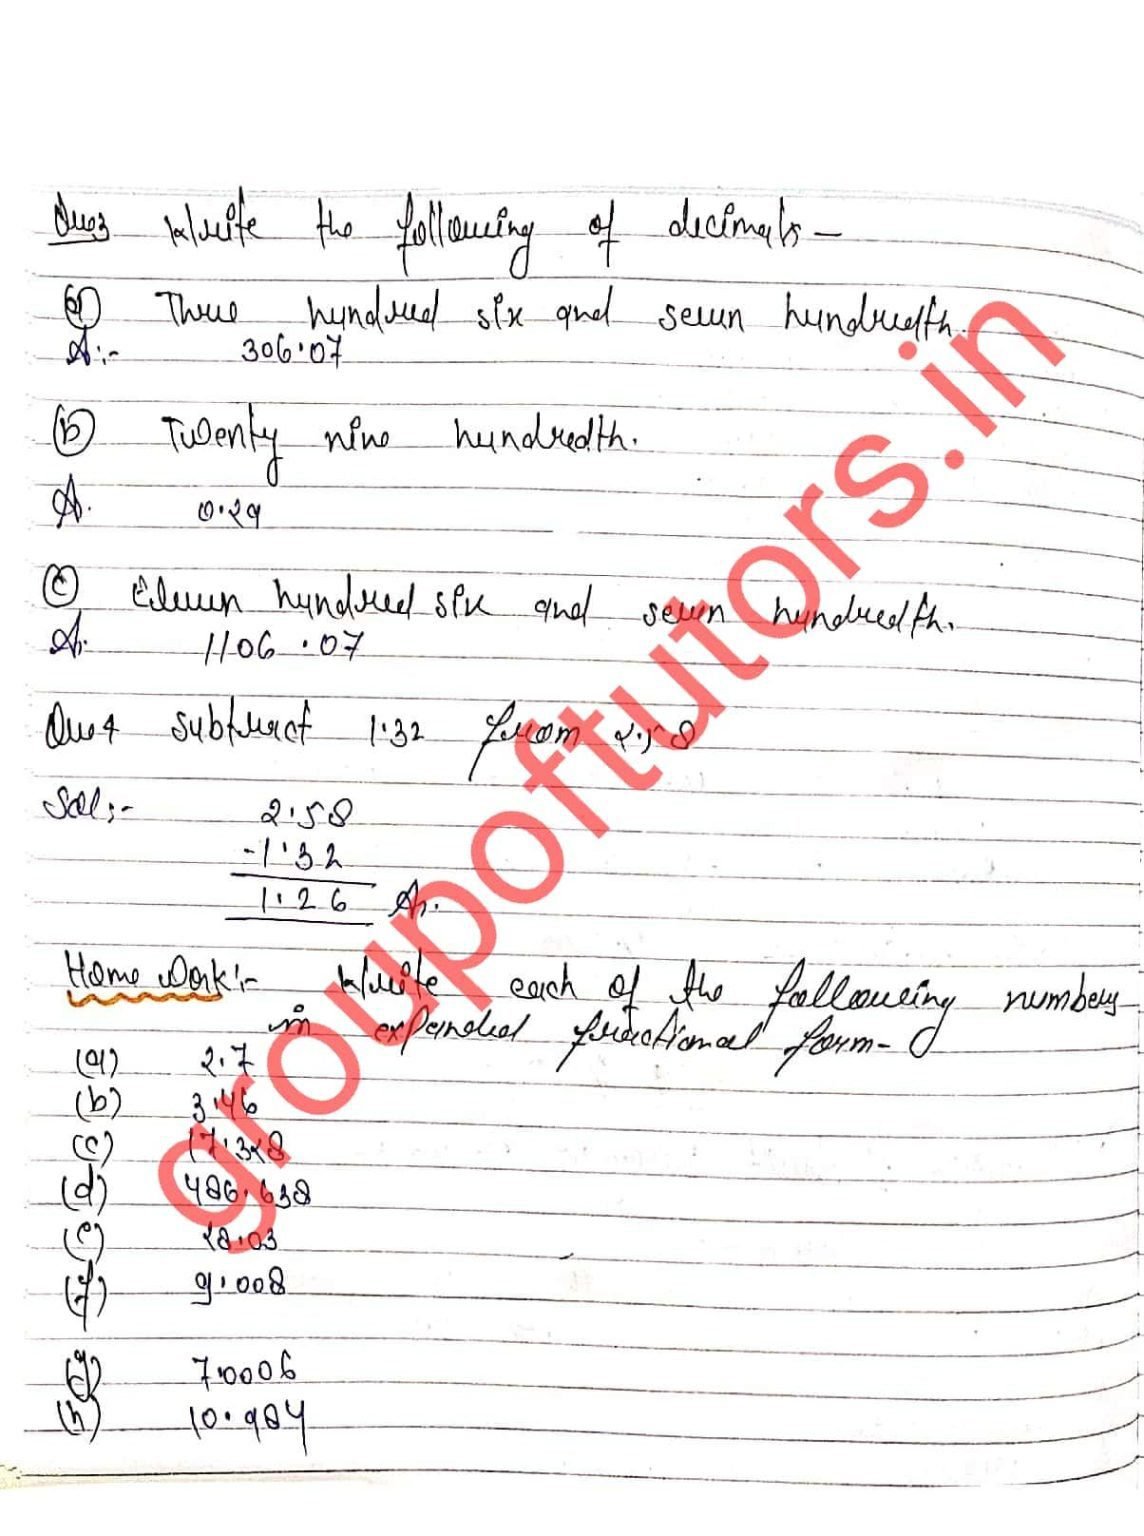 Que3 Write the following of decimals –
(a) Three hundred six and seven hundredth.
A:- 306.07
(b) Twenty nine hundredth.
A. 0.29
(c) Eleven hundred six and seven hundredth.
A. 1106.07
Que4 subtract 1.32 from 2.58
Sol:- 2.58
-1.32
1.26 A.
Home Work:- Write each of the following numbers
in expanded fractional form-
(a) 2.7
(b) 3.46
(c) 17.328
(d) 486.638
(e) 28.03
(f) 9.008
(g) 7.0006
(h) 10.984
groupoftutors.in